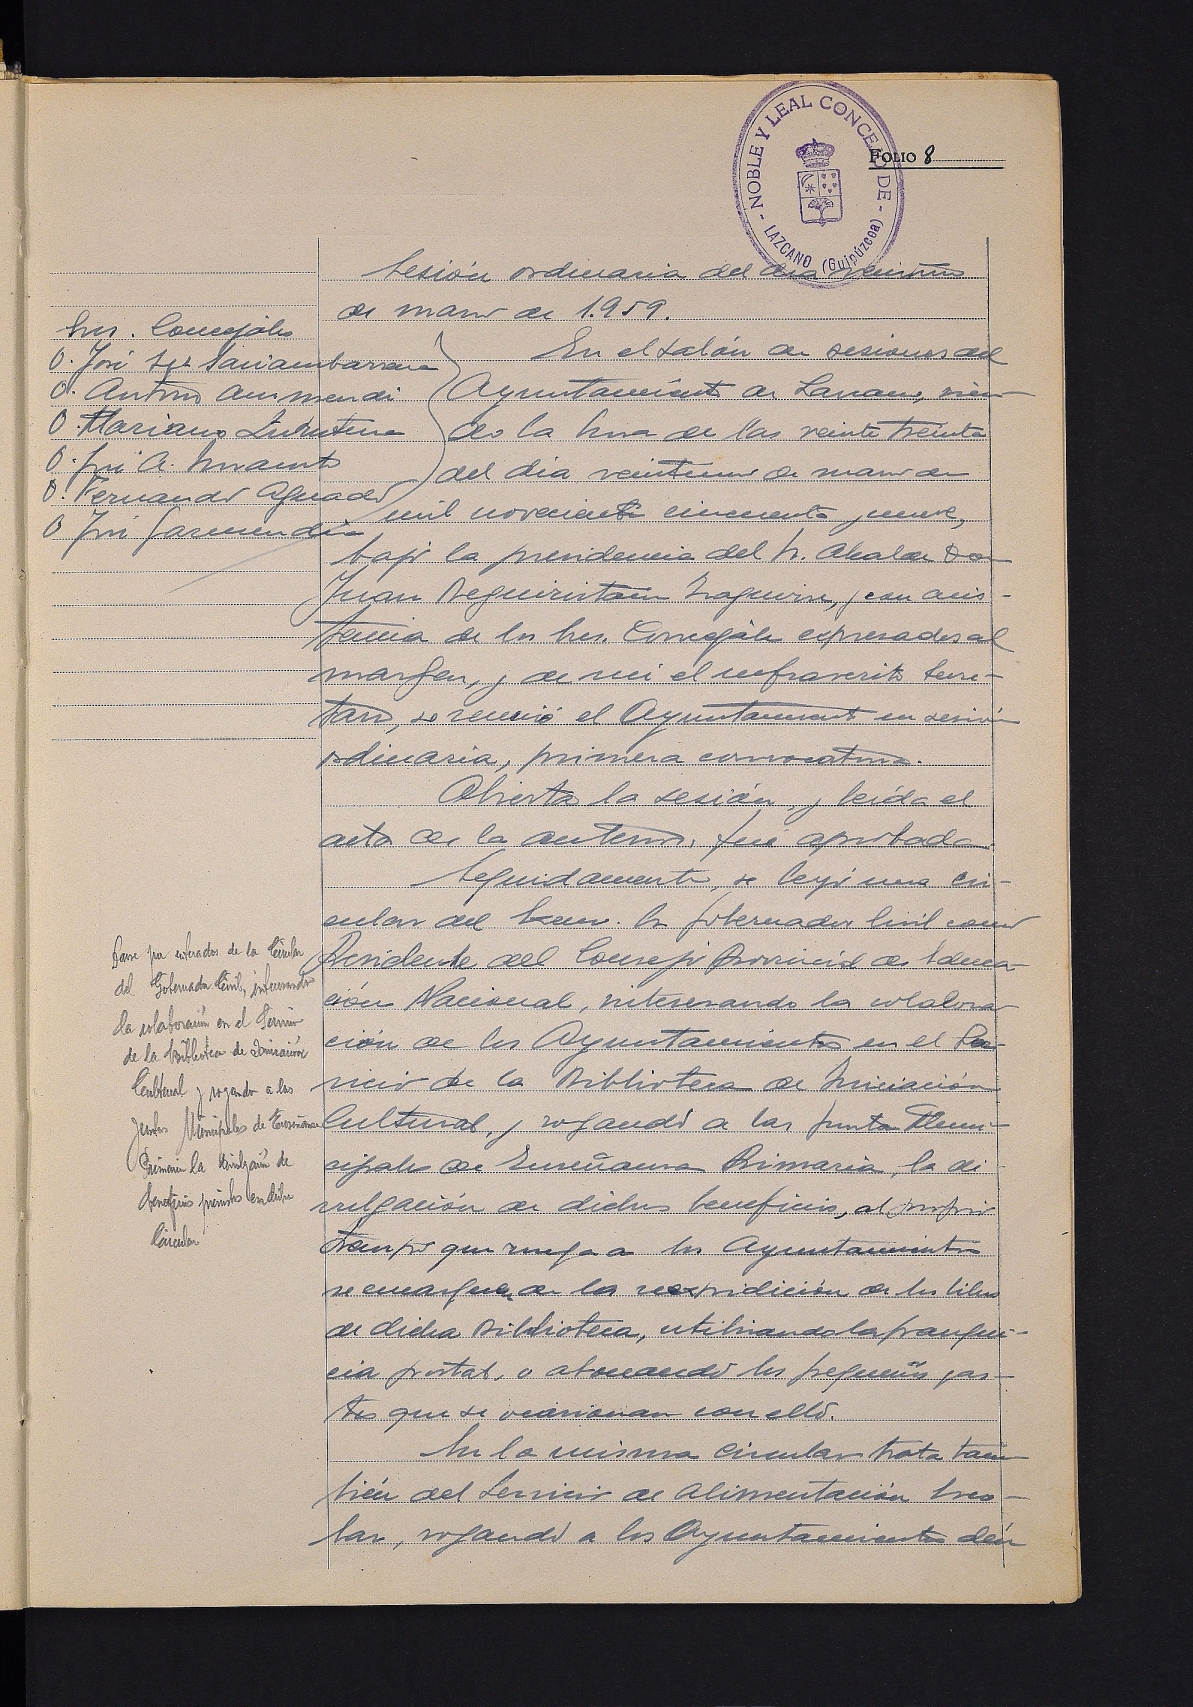 NOBLE Y LEAL CONCEJO DE
LAZCANO (Guipúzcoa)
FOLIO 8
Sesión ordinaria del día veintiuno
de marzo de 1.959.
Sres. Concejales
D. José
D. Antonio Aurmendi
D. Mariano
D. José A.
D. Fernando Aguado
D. José Garmendia
En el salón de sesiones del
Ayuntamiento de Lazcano, sien-
do la hora de las veinte treinta
del día veintiuno de marzo de
mil novecientos cincuenta y nueve,
bajo la presidencia del Sr. Alcalde Don
Juan Beguiristain y con asis-
tencia de los Sres. Concejales expresados al
margen, y de mi el infrascrito Secre-
tario, se reunió el Ayuntamiento en sesión
ordinaria, primera convocatoria.
Abierta la sesión, y leída el
acta de la anterior, fué aprobada.
Seguidamente, se leyó una cir-
cular del Excmo. Sr. Gobernador Civil como
Presidente del Consejo Provincial de Educa-
ción Nacional, interesando la colabora-
ción de los Ayuntamientos en el Ser-
vicio de la Biblioteca de Iniciación
Cultural, y rogando a las Juntas Muni-
cipales de Enseñanza Primaria, la di-
vulgación de dichos beneficios, al propio
tiempo que ruega a los Ayuntamientos
se encarguen de la reexpidición de los libros
de dicha Biblioteca, utilizando la franqui-
cia postal, o abonando los pequeños gas-
tos que se ocasionan con ello.
En la misma circular trata tam-
bién del Servicio de Alimentación Esco-
lar, rogando a los Ayuntamientos den
Darse por enterados de la Circular
del Gobernador Civil, interesando
la colaboración en el Servicio
de la Biblioteca de Iniciación
Cultural y rogando a las
Juntas Municipales de Enseñanza
Primaria la divulgación de
beneficios previstos en dicha
Circular